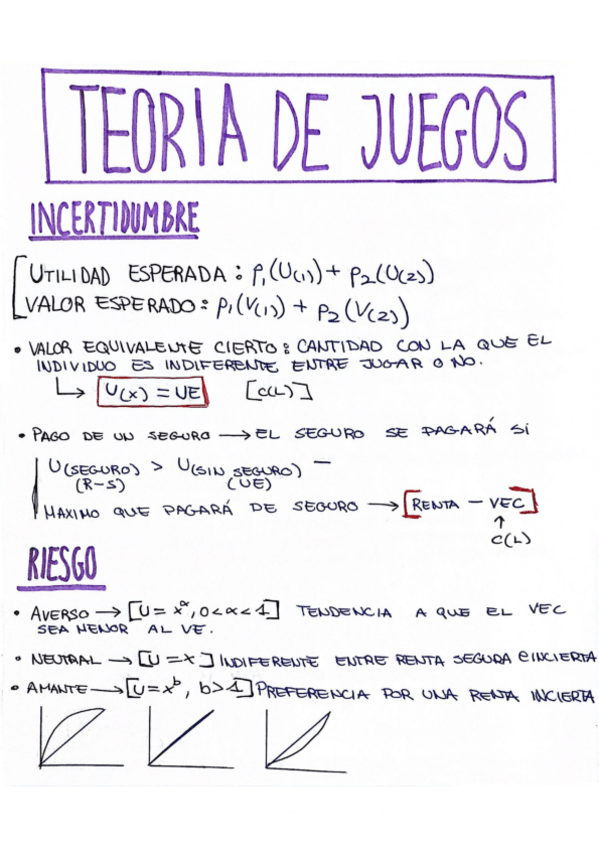 TEORIA DE JUEGOS
INCERTIDUMBRE
UTILIDAD ESPERADA: p₁(U(1)) + p₂(U(2))
VALOR ESPERADO: p₁(V(1)) + p₂(V(2))
• VALOR EQUIVALENTE CIERTO: CANTIDAD CON LA QUE EL
INDIVIDUO ES INDIFERENTE ENTRE JUGAR O NO.
↳ U(x) = UE [C(L)]
• PAGO DE UN SEGURO → EL SEGURO SE PAGARÁ SI
U(SEGURO) > U(SIN SEGURO) –
(R-S) (UE)
MAXIMO QUE PAGARÁ DE SEGURO → [RENTA – VEC]
↑
C(L)
RIESGO
• AVERSO → [U = xᵅ, 0<α<1] TENDENCIA A QUE EL VEC
SEA MENOR AL VE.
• NEUTRAL → [U = x] INDIFERENTE ENTRE RENTA SEGURA e INCIERTA
• AMANTE → [U = xᵇ, b>1] PREFERENCIA POR UNA RENTA INCIERTA